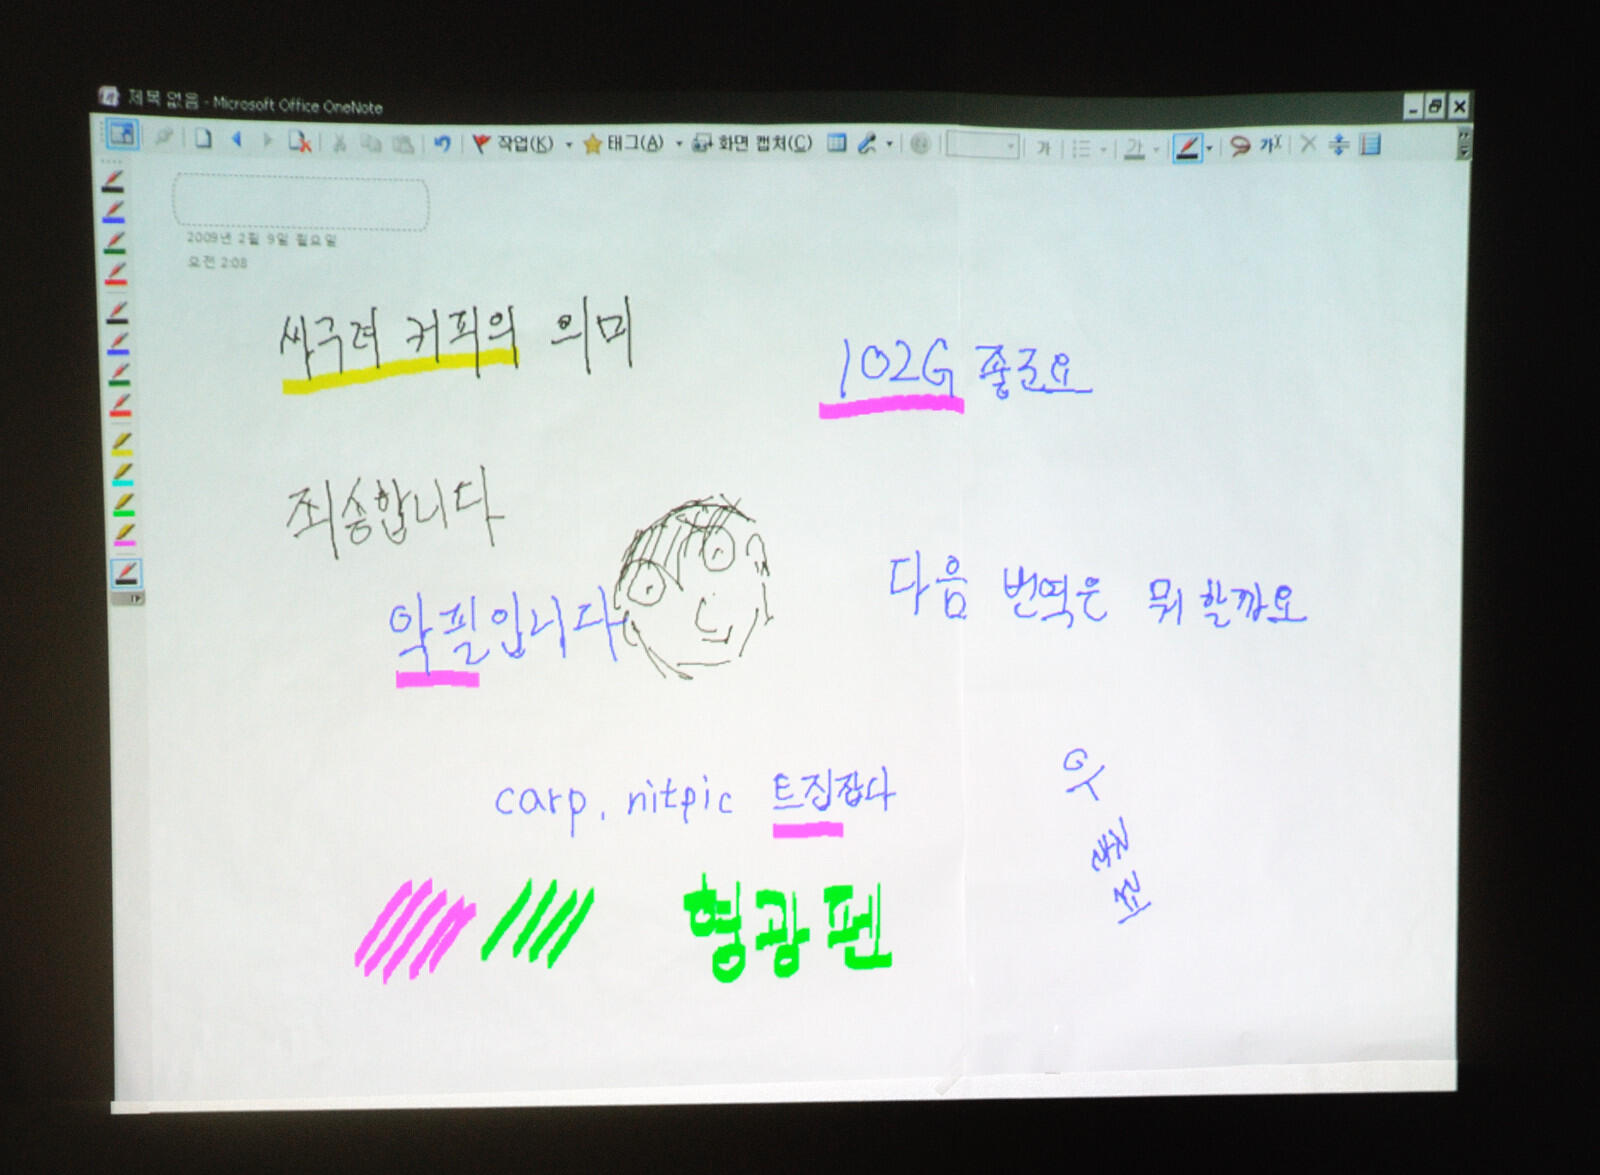 제목 없음 - Microsoft Office OneNote
작업(K) 태그(A) 화면 캡처(C) 가 가 가
2009년 2월 9일 월요일
오전 2:08
싸구려 커피의 의미
102G 좋군요
죄송합니다
악필입니다
다음 번역은 뭐 할까요
carp, nitpic 트집잡다
형광펜